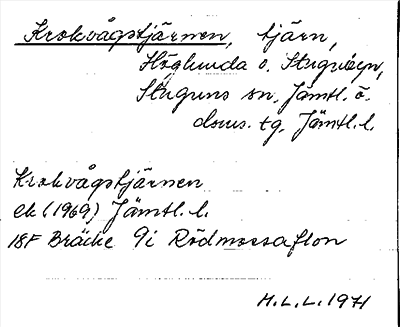 Krokvågstjärnen, tjärn,
Höglunda o. Stugubyn,
Stuguns sn, Jämtl. ö.
doms. tg, Jämtl. l.
Krokvågstjärnen
ek (1969) Jämtl. l.
18F Bräcke 9i Rödmossaflon
H.L.L. 1971